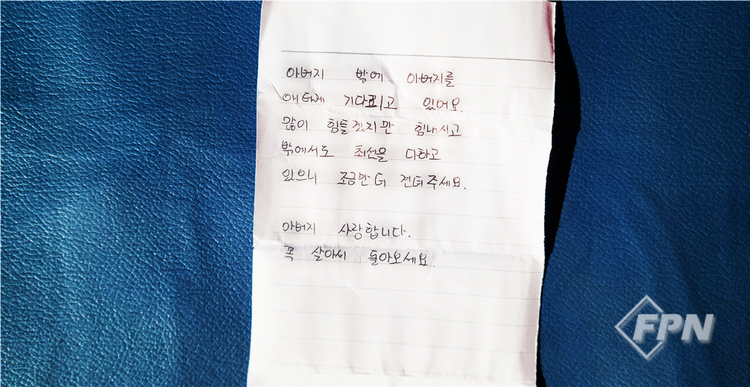 아버지 밖에 아버지를
애타게 기다리고 있어요.
많이 힘들겠지만 힘내시고
밖에서도 최선을 다하고
있으니 조금만 더 견뎌주세요.
아버지 사랑합니다.
꼭 살아서 돌아오세요.
FPN